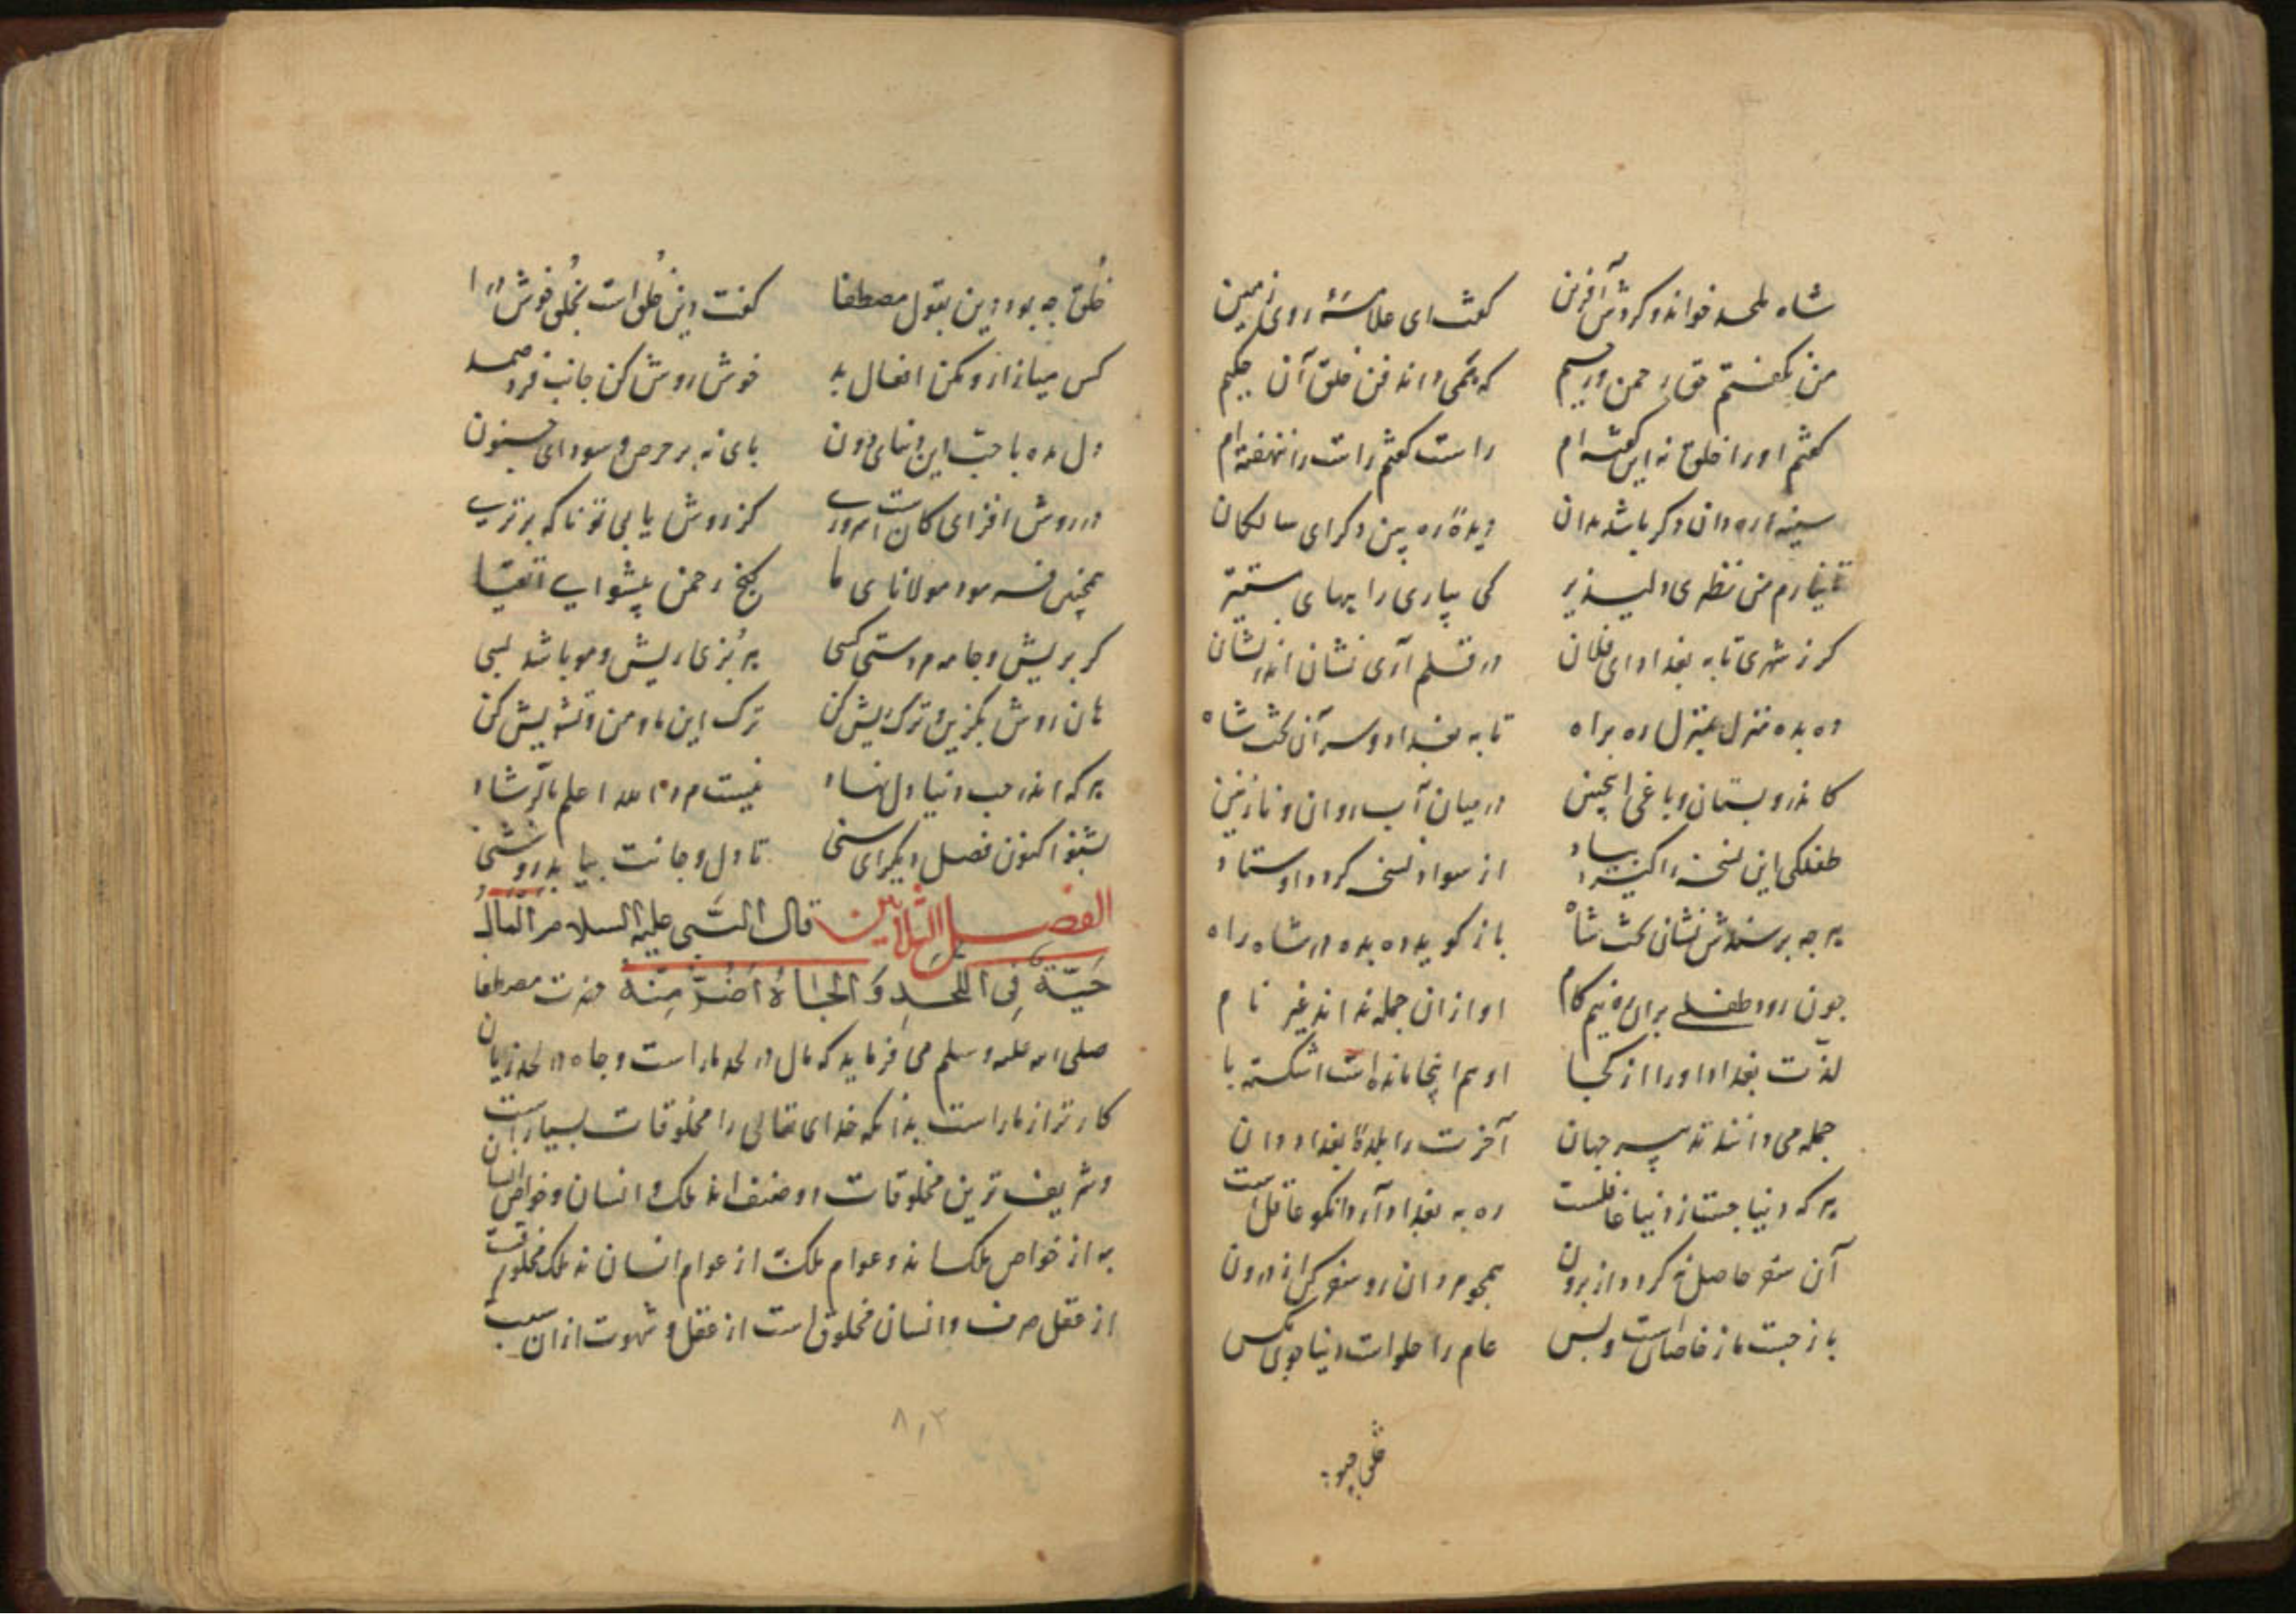 شاه ملحد خواند و کردش آفرین کفت ای علامهٔ روی زمین
من نکفتم حق رحمن و رحیم که نمی داند فن خلق آن حکیم
کفتم او را خلق نه این کفته ام راست کفتم راست را ننهفته ام
سینه ره دان دکر باشد بدان دیدهٔ ره بین دکر ای سالکان
من نظری دلپذیر کی سپاری را بهای
کر ز شهری تا به بغداد ای فلان در قلم آری نشان اندر نشان
ده بده منزل بمنزل ره براه تا به بغداد و سر آن تخت شاه
کاندرو بستان و باغی اینچنین در میان آب روان و نازنین
طفلکی این نسخه را کیرد بیاد از سواد نسخه کردد اوستاد
هر چه پرسندش نشان تخت شاه باز کوید ده بده در شاه راه
چون رود طفلی بران ره نیم کام او ازان جمله نداند غیر نام
لذت بغداد او را از کجا او هم اینجا مانده است اشکسته پا
جمله می دانند نه پسر جهان آخرت را بلدهٔ بغداد دان
هر که دنیا جست از دنیا غافلست ره به بغداد آرد آنکو عاقل است
آن سفر حاصل نه کردد از برون همچو مردان رو سفر کن از درون
باز جست از خاصان است و بس عام را حلوا ست دنیا چون مکس
خلق چه بود
خلق چه بود دین بقول مصطفا کفت دین خلق است بخلی خوش درا
کس میازار و مکن افعال بد خوش روش کن جانب فرد صمد
دل مده با حب این دنیای دون پای نه بر حرص و سودای فسون
در روش افزای کان است سروری کز روش یابی تو ناکه برتری
همچنین فرمود مولانای ما کنج رحمن پیشوای اتقیا
کر بریش و جامه مردستی کسی هر بزی را ریش و مو باشد بسی
هان روش بکزین و ترک ریش کن ترک این ما و من و تشویش کن
هر که اندر حب دنیا دل نهاد نیست مرد الله اعلم بالرشاد
بشنو اکنون فصل دیکر ای سنی تا دل و جانت بیابد روشنی
الفصل الثلاثین قال النبی علیه السلام المال
حَیّةٌ فِی اللحدِ وَالجاهُ اَضَرُّ مِنه حضرت مصطفا
صلی الله علیه وسلم می فرماید که مال در لحد مار است و جاه در لحد زیان
کارتر از مار است بدانکه خدای تعالی را مخلوقات بسیار است
و شریف ترین مخلوقات دو صنف اند ملک و انسان و خواص انسان
به از خواص ملکانند و عوام ملک از عوام انسان نه ملک مخلوقست
از عقل صرف و انسان مخلوق است از عقل و شهوت ازان سبب
۸۰۲